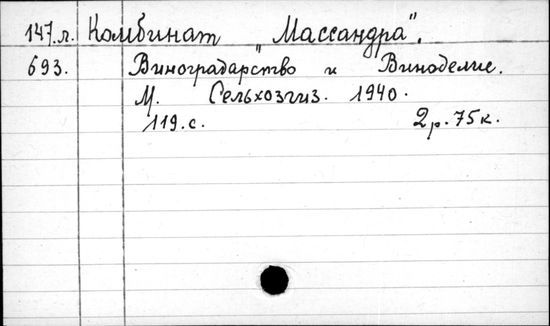 147.л. Комбинат "Массандра".
693. Виноградарство и Виноделие.
М. Сельхозгиз. 1940.
119.с. 2р.75к.